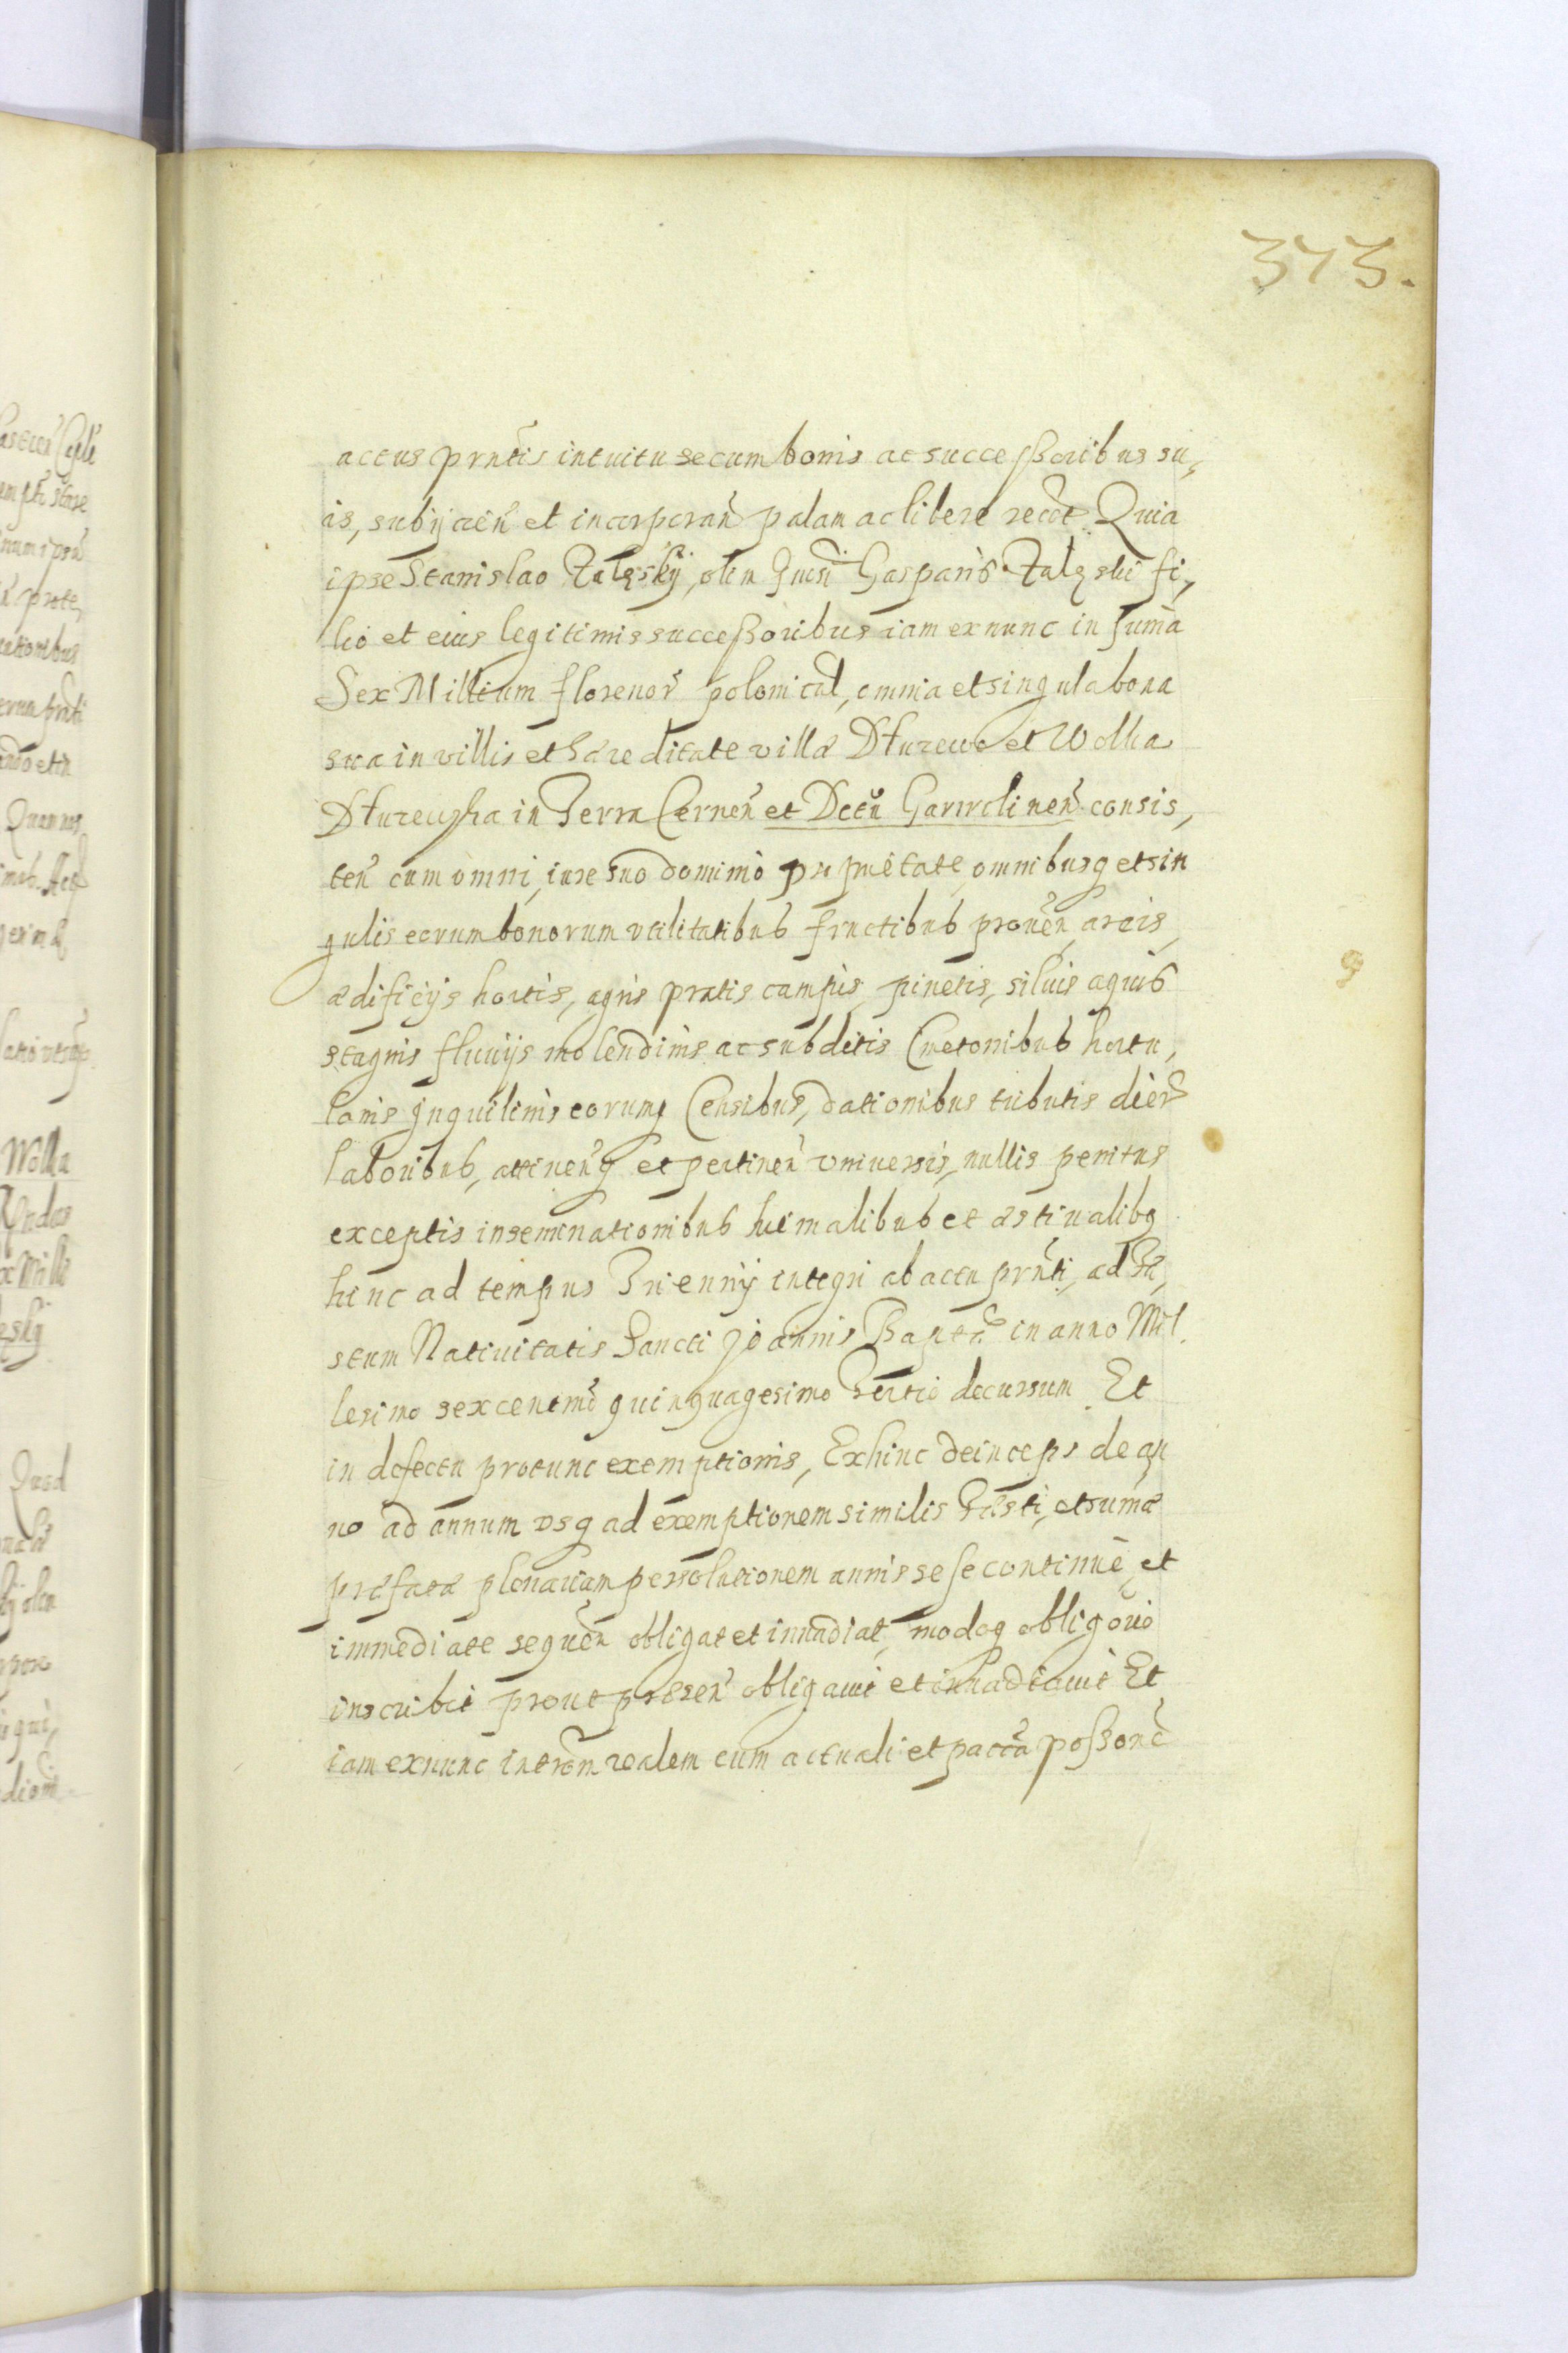 373.
actus prñtis intuitu secum bonis ac successoribus su,
is, subijcień et incorporań palam ac libere recõt Quia
ipse Stanislao Zalęskÿ, olim Gńsi Gasparis Zalęski fi,
lio et eius legitimis successoribus iam exnunc in suma
Sex Millium florenor̃ polonical, omnia et singula bona
sua in villis et hæreditate villæ Dturewo et Wolka
Dturewska in Terra Cerneñ et Dctũ Garwolineñ consis,
teñ cum omni iure suo dominio prprietate omnibusq et sin
gulis eorum bonorum vtilitatibus fructibus proueñ areis,
ædificijs hortis, agris pratis campis pinetis, siluis aquis
stagnis fluuijs molendinis ac subditis Cmetonibus hortu,
lanis Inquilinis eorumq Censibus, dationibus tributis dier̃
laboribus, attineñq et pertineñ vniuersis, nullis penitus
exceptis inseminationibus hiemalibus et æstiualibq
hinc ad tempus Triennij integri ab actu prñti, ad Fe,
stum Natiuitatis Sancti Joannis Baptæ in anno Mil
lesimo sexcentmõ quinquagesimo tertio decursum. Et
in defectu protunc exemptionis, Exhinc deinceps de an
no ad annum vsq ad exemptionem similis Fæsti, et sumæ
præfatæ plenariam persolutionem annis sese continuè, et
immediate sequeñ obligat et inuadiat, modoq obligõuio
inscribit prout præseñ obligauit et inuadiauit Et
iam exnunc intrõm realem cum actuali et pacća possonẽ